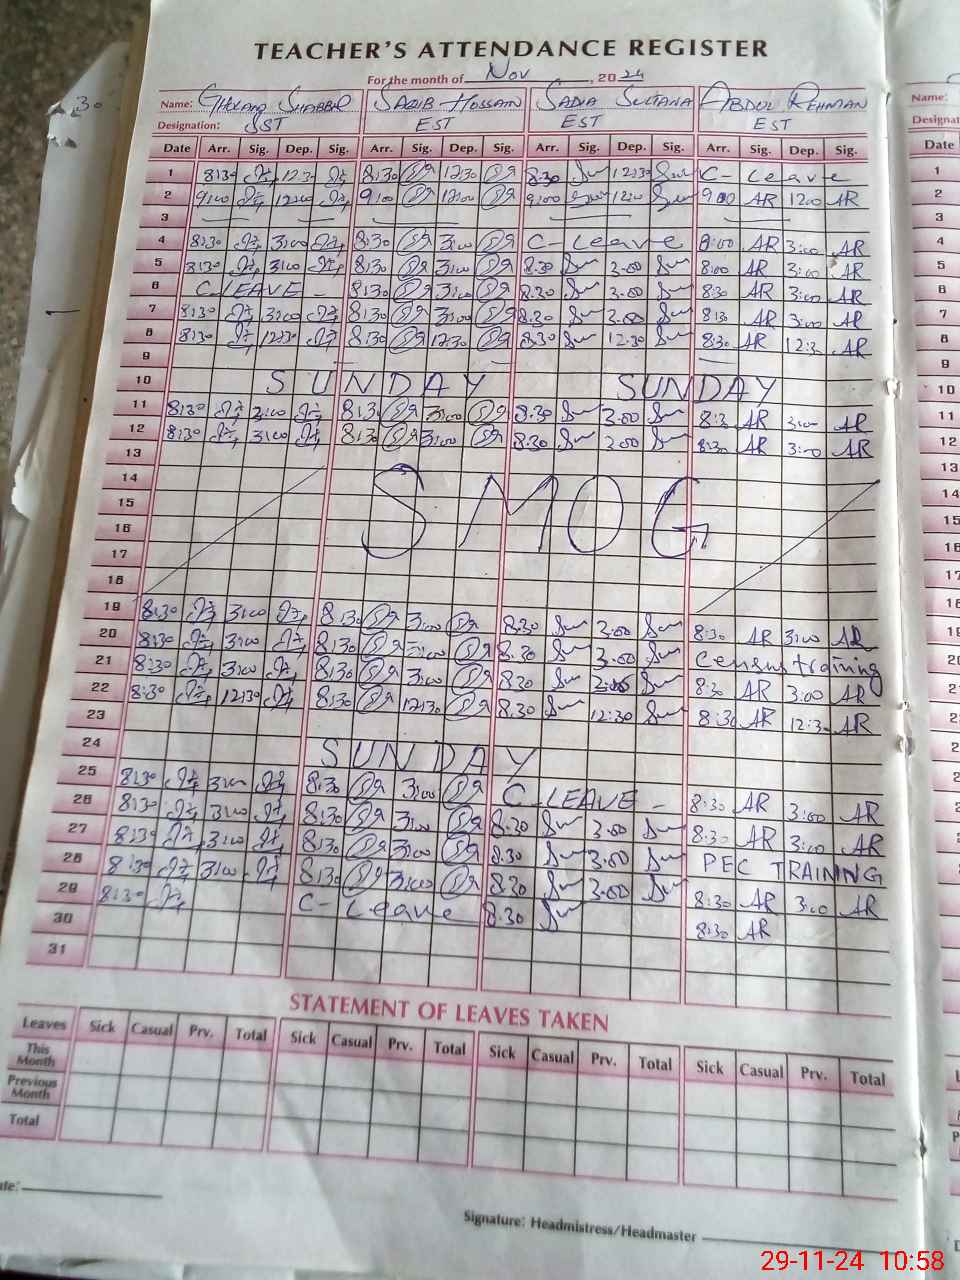 TEACHER'S ATTENDANCE REGISTER
For the month of Nov, 2024
Name: GHULAM SHABBIR SAQIB HUSSAIN SADIA SULTANA ABDUL REHMAN Name:
Designation: SST EST EST EST
Date Arr. Sig. Dep. Sig. Arr. Sig. Dep. Sig. Arr. Sig. Dep. Sig. Arr. Sig. Dep. Sig. Date
1 8:30 12:30 8:30 12:30 8:30 12:30 C- Leave 1
2 9:00 12:00 9:00 12:00 9:00 12:00 9:00 AR 12:00 AR 2
3 3
4 8:30 3:00 8:30 3:00 C- Leave 8:00 AR 3:00 AR 4
5 8:30 3:00 8:30 3:00 8.30 3.00 8:00 AR 3:00 AR 5
6 C. LEAVE - 8:30 3:00 8.30 3.00 8:30 AR 3:00 AR 6
7 8:30 3:00 8:30 3:00 8.30 3.00 8:30 AR 3:00 AR 7
8 8:30 12:30 8:30 12:30 8:30 12.30 8:30 AR 12:30 AR 8
9 9
10 SUNDAY SUNDAY 10
11 8:30 3:00 8:30 3:00 8.30 3.00 8:30 AR 3:00 AR 11
12 8:30 3:00 8:30 3:00 8.30 3.00 8:30 AR 3:00 AR 12
13 13
14 14
15 SMOG 15
16 16
17 17
18
19 8:30 3:00 8:30 3:00 8.30 3.00 8:30 AR 3:00 AR
20 8:30 3:00 8:30 3:00 8.30 3.00 Census training
21 8:30 3:00 8:30 3:00 8.30 3.00 8:30 AR 3:00 AR
22 8:30 12:30 8:30 12:30 8.30 12:30 8:30 AR 12:30 AR
23
24 SUNDAY
25 8:30 3:00 8:30 3:00 C-LEAVE - 8:30 AR 3:00 AR
26 8:30 3:00 8:30 3:00 8.30 3.00 8:30 AR 3:00 AR
27 8:30 3:00 8:30 3:00 8.30 3.00 PEC TRAINING
28 8:30 3:00 8:30 3:00 8.30 3.00 8:30 AR 3:00 AR
29 8:30 C- Leave 8.30 8:30 AR
30
31
STATEMENT OF LEAVES TAKEN
Leaves Sick Casual Prv. Total Sick Casual Prv. Total Sick Casual Prv. Total Sick Casual Prv. Total
This Month
Previous Month
Total
Signature: Headmistress/Headmaster
29-11-24 10:58